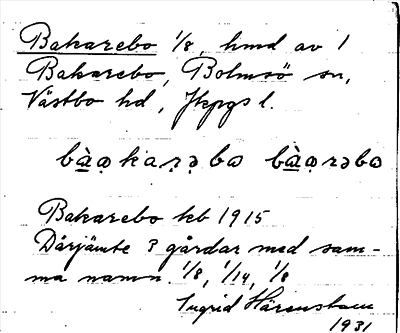 Bakarebo 1/8, hmd av 1
Bakarebo, Bolmsö sn,
Västbo hd, Jkpgs l.
bà̱ọkaṛəbɷ bà̱ọrəbɷ
Bakarebo kb 1915
Därjämte 3 gårdar med sam-
ma namn. 1/8, 1/14, 1/8
Ingrid Härenstam
1931